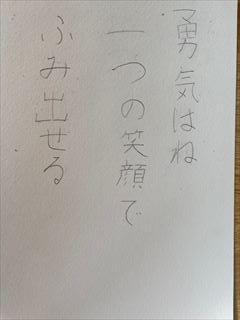 勇気はね
一つの笑顔で
ふみ出せる